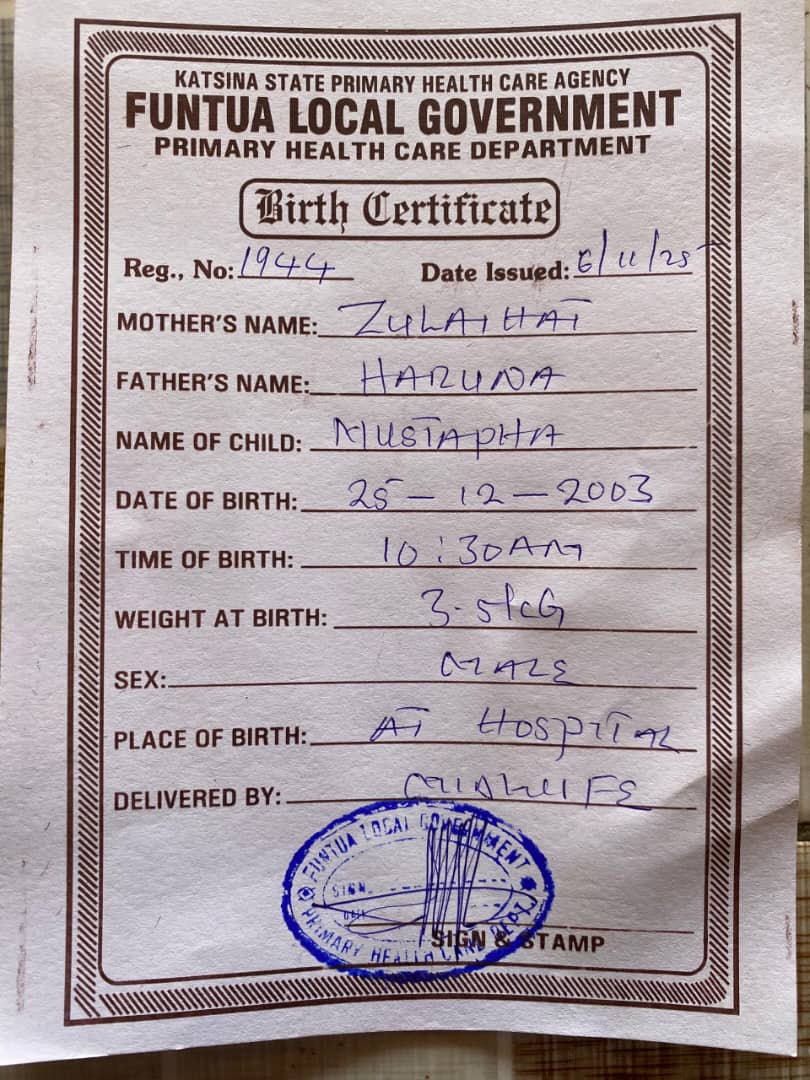 KATSINA STATE PRIMARY HEALTH CARE AGENCY
FUNTUA LOCAL GOVERNMENT
PRIMARY HEALTH CARE DEPARTMENT
Birth Certificate
Reg., No: 1944 Date Issued: 6/11/25
MOTHER'S NAME: ZULAIHAT
FATHER'S NAME: HARUNA
NAME OF CHILD: MUSTAPHA
DATE OF BIRTH: 25-12-2003
TIME OF BIRTH: 10:30AM
WEIGHT AT BIRTH: 3.5KG
SEX: MALE
PLACE OF BIRTH: AT HOSPITAL
DELIVERED BY: MIDWIFE
FUNTUA LOCAL GOVERNMENT
SIGN
PRIMARY HEALTH CARE DEPT.
SIGN & STAMP